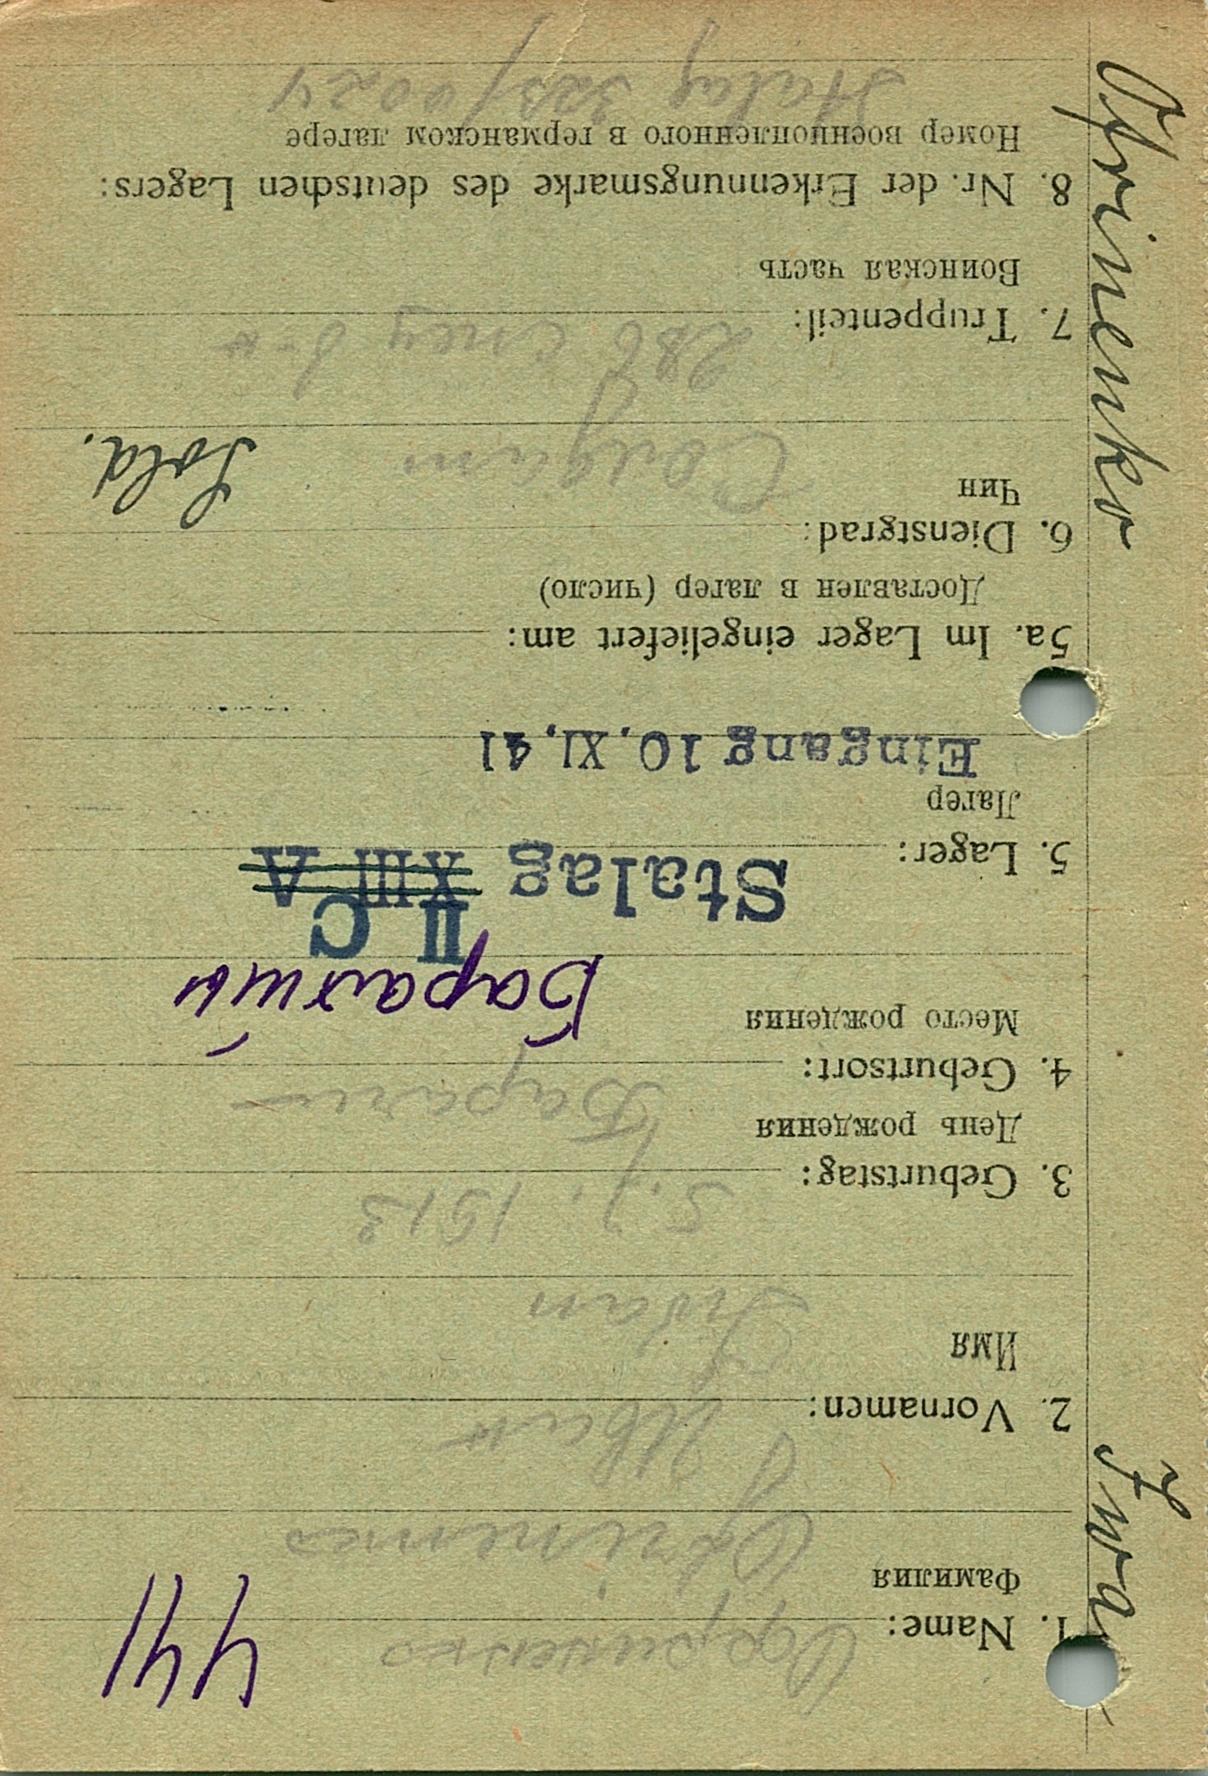 441
1. Name: Офриненко
Фамилия
Ofrinenko
2. Vornamen: Иван
Имя
Iwan
3. Geburtstag: 5.7.1913
День рождения
4. Geburtsort:
Место рождения
II C
5. Lager: Stalag XIII A
Лагер
Eingang 10. XI. 41
5a. Im Lager eingeliefert am:
Доставлен в лагер (число)
6. Dienstgrad: Солдат Sold.
Чин
7. Truppenteil: 286
Воинская часть
8. Nr. der Erkennungsmarke des deutschen Lagers:
Номер военнопленного в германском лагере
Stalag
Ofrinenko Iwan